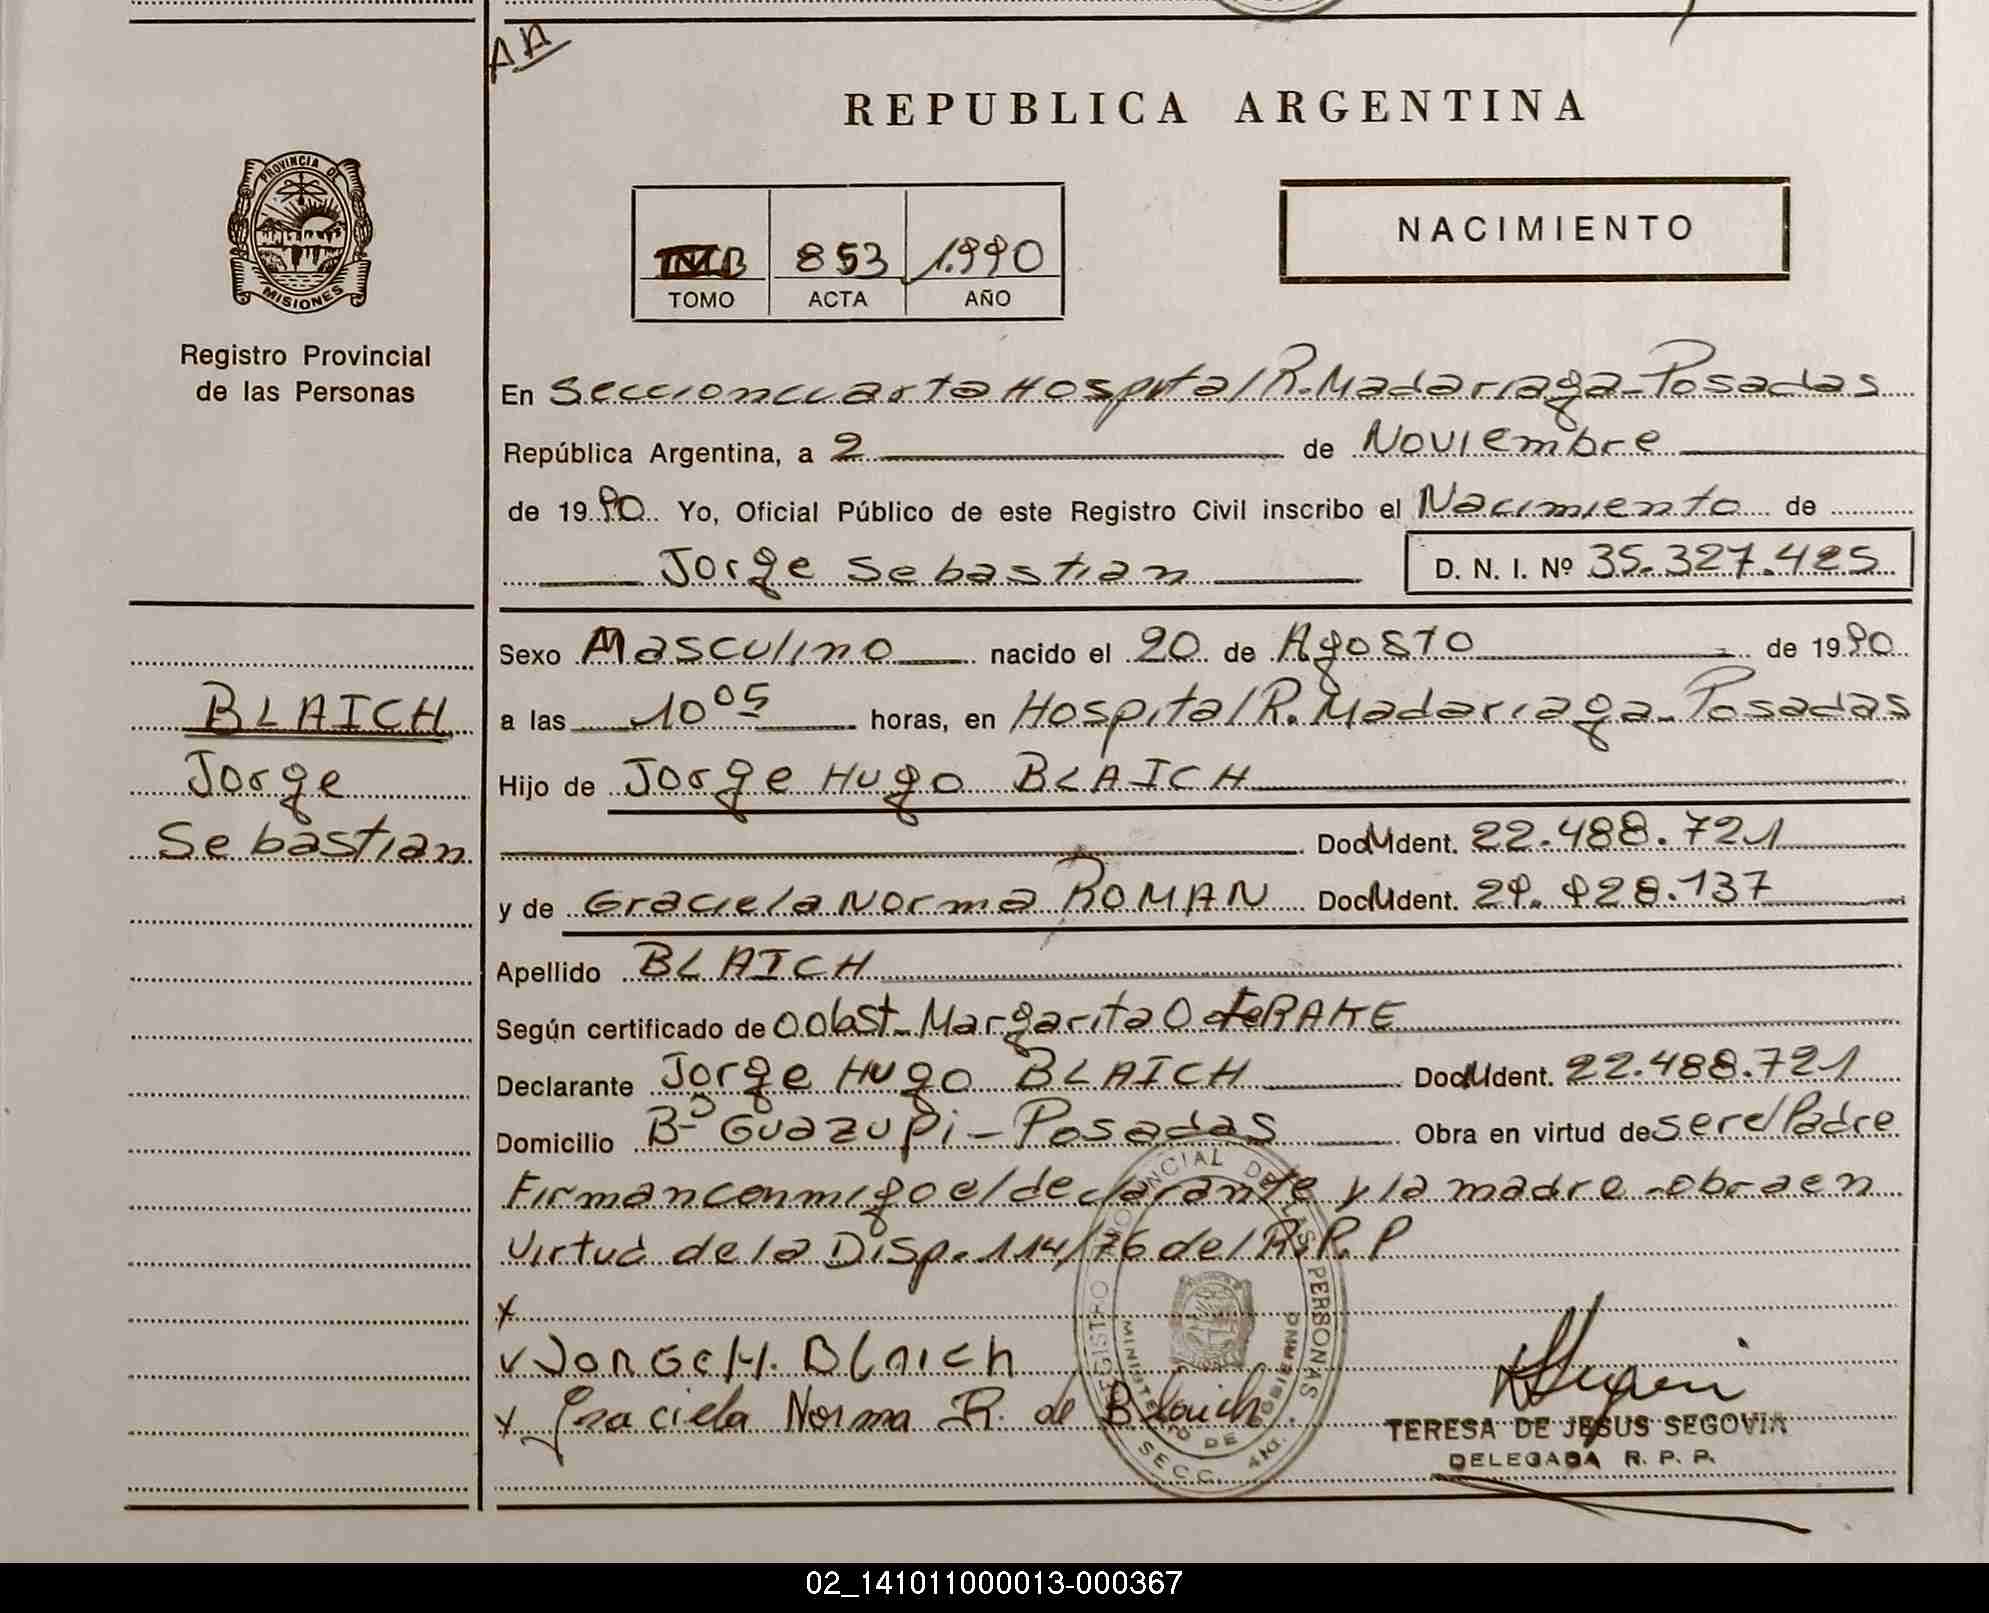 AA
REPUBLICA ARGENTINA
PROVINCIA DE
MISIONES
Registro Provincial
de las Personas
853 1.990
TOMO ACTA AÑO
NACIMIENTO
En Seccion cuarta Hospital R. Madariaga - Posadas
República Argentina, a 2 de Noviembre
de 1990 Yo, Oficial Público de este Registro Civil inscribo el Nacimiento de
Jorge Sebastian D. N. I. Nº 35.327.425
Sexo Masculino nacido el 20 de Agosto de 1990
a las 10 05 horas, en Hospital R. Madariaga - Posadas
Hijo de Jorge Hugo BLAICH
Doc Ident. 22.488.721
y de Graciela Norma ROMAN Doc Ident. 29.928.137
Apellido BLAICH
Según certificado de Obst. Margarita O de RAKE
Declarante Jorge Hugo BLAICH Doc Ident. 22.488.721
Domicilio Bº Guazupi - Posadas Obra en virtud de ser el Padre
Firman conmigo el declarante y la madre - obra en
virtud de la Disp. 114/76 del R.P.P
x
v JORGE H. BLAICH
x Graciela Norma R. de Blaich
TERESA DE JESUS SEGOVIA
DELEGADA R. P. P.
REGISTRO PROVINCIAL DE LAS PERSONAS
MINISTERIO DE GOBIERNO
SECC. 4ta.
BLAICH
Jorge
Sebastian
02_141011000013-000367